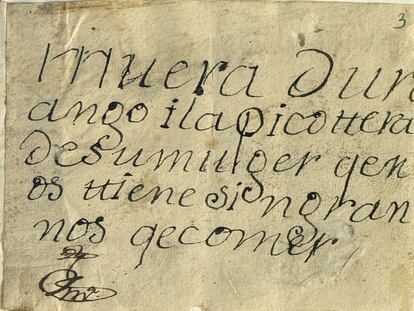 3
Muera Dur
ango i la picottera
de su mulger qen
os ttiene sin gran
nos qe comer